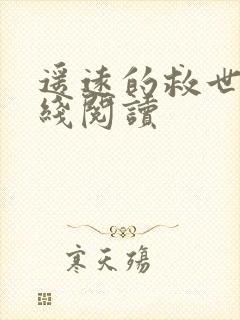 遥遠的救世
綫閱讀
寒天殤